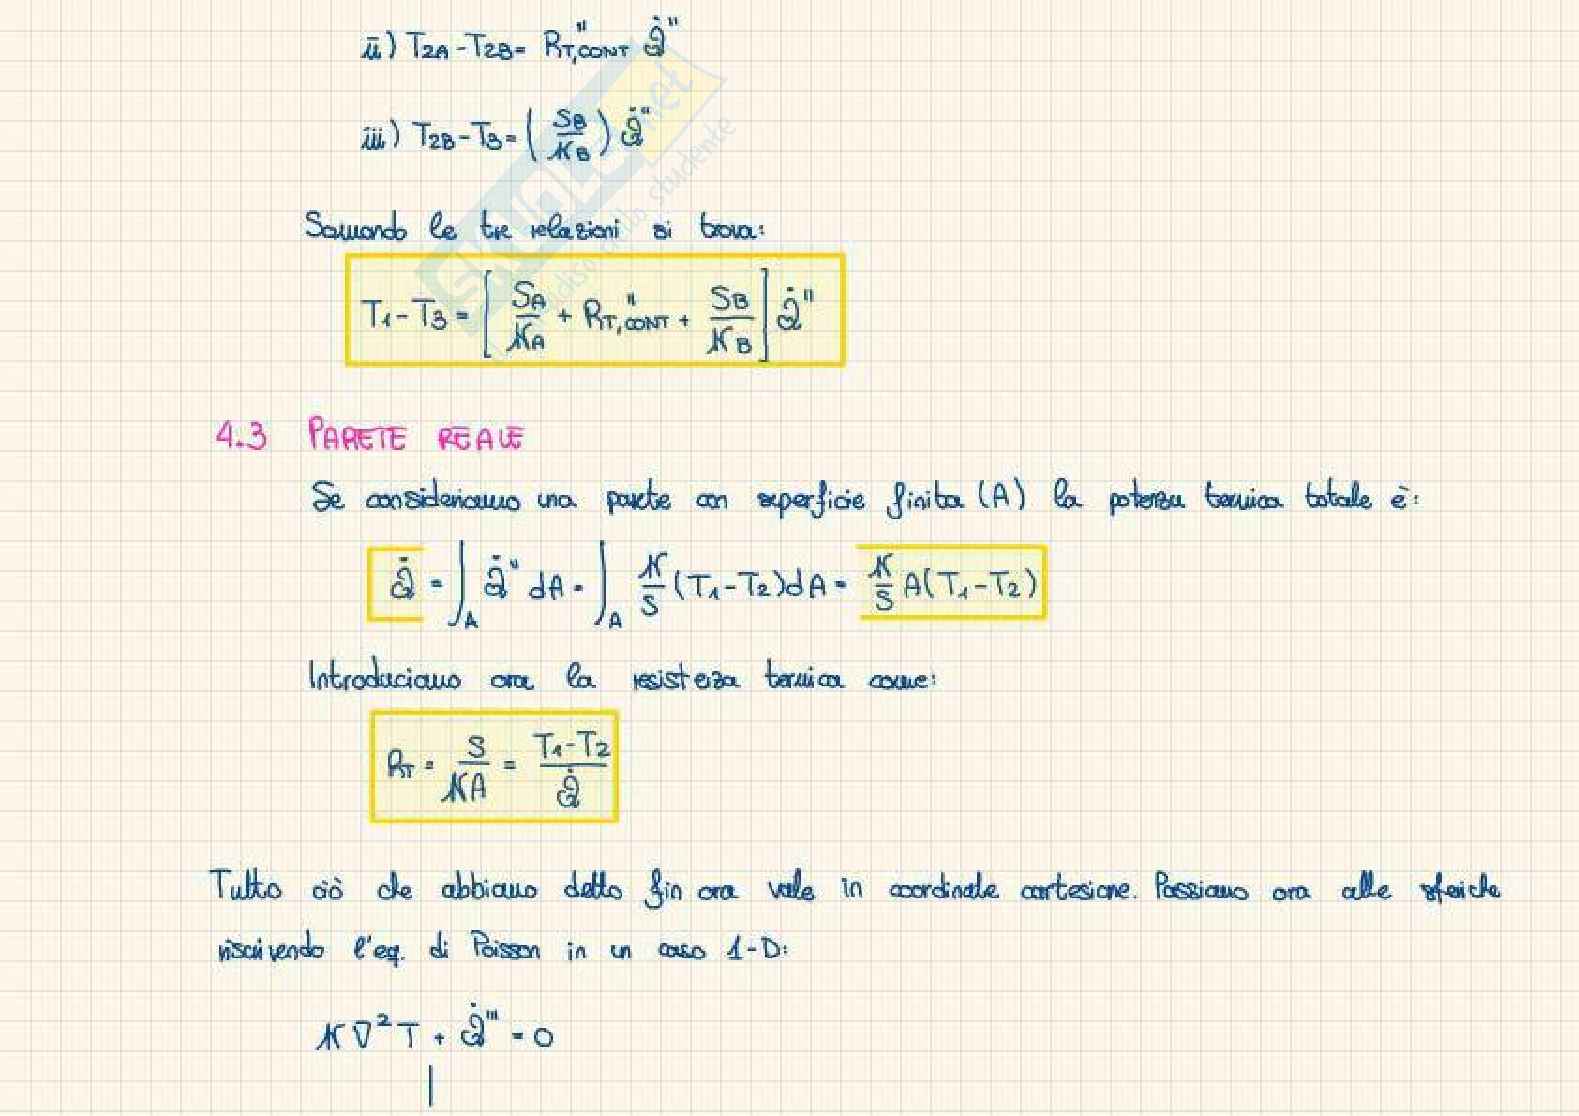 ii) T2A - T2B = R"T,CONT Q̇"
iii) T2B - T3 = (SB/KB) Q̇"
Sommando le tre relazioni si trova:
T1 - T3 = [SA/KA + R"T,CONT + SB/KB] Q̇"
4.3 PARETE REALE
Se consideriamo una parete con superficie finita (A) la potenza termica totale è:
Q̇ = ∫A Q̇" dA = ∫A K/S (T1 - T2) dA = K/S A (T1 - T2)
Introduciamo ora la resistenza termica come:
RT = S/KA = T1 - T2/Q̇
Tutto ciò che abbiamo detto fin ora vale in coordinate cartesiane. Passiamo ora alle sferiche
riscrivendo l'eq. di Poisson in un caso 1-D:
K∇²T + Q̇''' = 0
SKUOLA.net